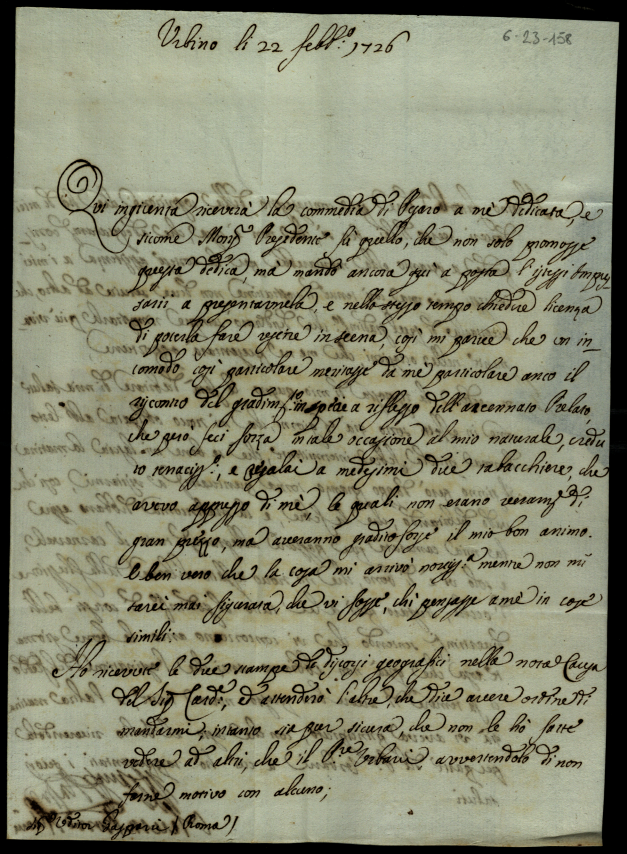 6-23-158
Urbino li 22 febb:o 1726
Qui ingiunta riceverà la commedia di Pesaro a mè dedicata, e
sicome Mons.r Presidente fù quello, che non solo promosse
questa dedica, ma mandò ancora quì a posta l'istessi Impre-
sarii a presentarmela, e nello stesso tempo chiedere licenza
di poterla fare recitare in scena, così mi parve che un in-
comodo così particolare meritasse da me particolare anco il
riscontro del gradim:to a riflesso dell'accennato Prelato,
che però feci forza in tale occasione al mio naturale, credu-
to tenaciss:o, e regalai a medesimi due tabacchiere, che
avevo appresso di mè, le quali non erano veram:te di
gran prezzo, ma averanno gradito forse il mio bon animo.
è ben vero che la cosa mi arrivò mentre non mi
sarei mai figurata, che vi fosse, chi pensasse a mè in cose
simili.
Hò ricevute le due stampe di discorsi geografici nella nota Causa
del Sig.r Card:e, ed attenderò l'altre, che dice avere ordine di
mandarmi; intanto sia pur sicura, che non le hò fatte
vedere ad altri, che il P.re Urbani avvertendolo di non
farne motivo con alcuno;
Gasparri (Roma)